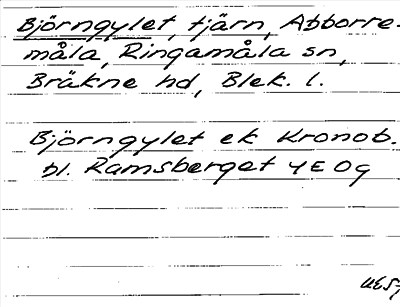 Björngylet, tjärn, Abborre-
måla, Ringamåla sn,
Bräkne hd, Blek. l.
Björngylet ek Kronob.
bl. Ramsberget 4E 0g